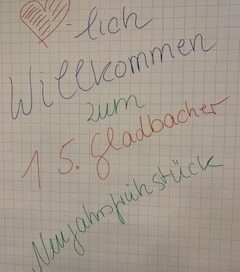 -lich
Willkommen
zum
15. Gladbacher
Neujahrsfrühstück